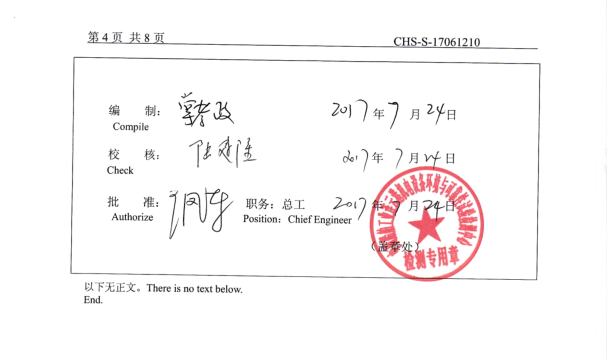 第 4 页 共 8 页 CHS-S-17061210
编 制: 2017 年 7 月 24 日
Compile
校 核: 2017 年 7 月 24 日
Check
批 准: 职务: 总工 2017 年 7 月 24 日
Authorize Position: Chief Engineer
(盖章处)
检测专用章
以下无正文。There is no text below.
End.